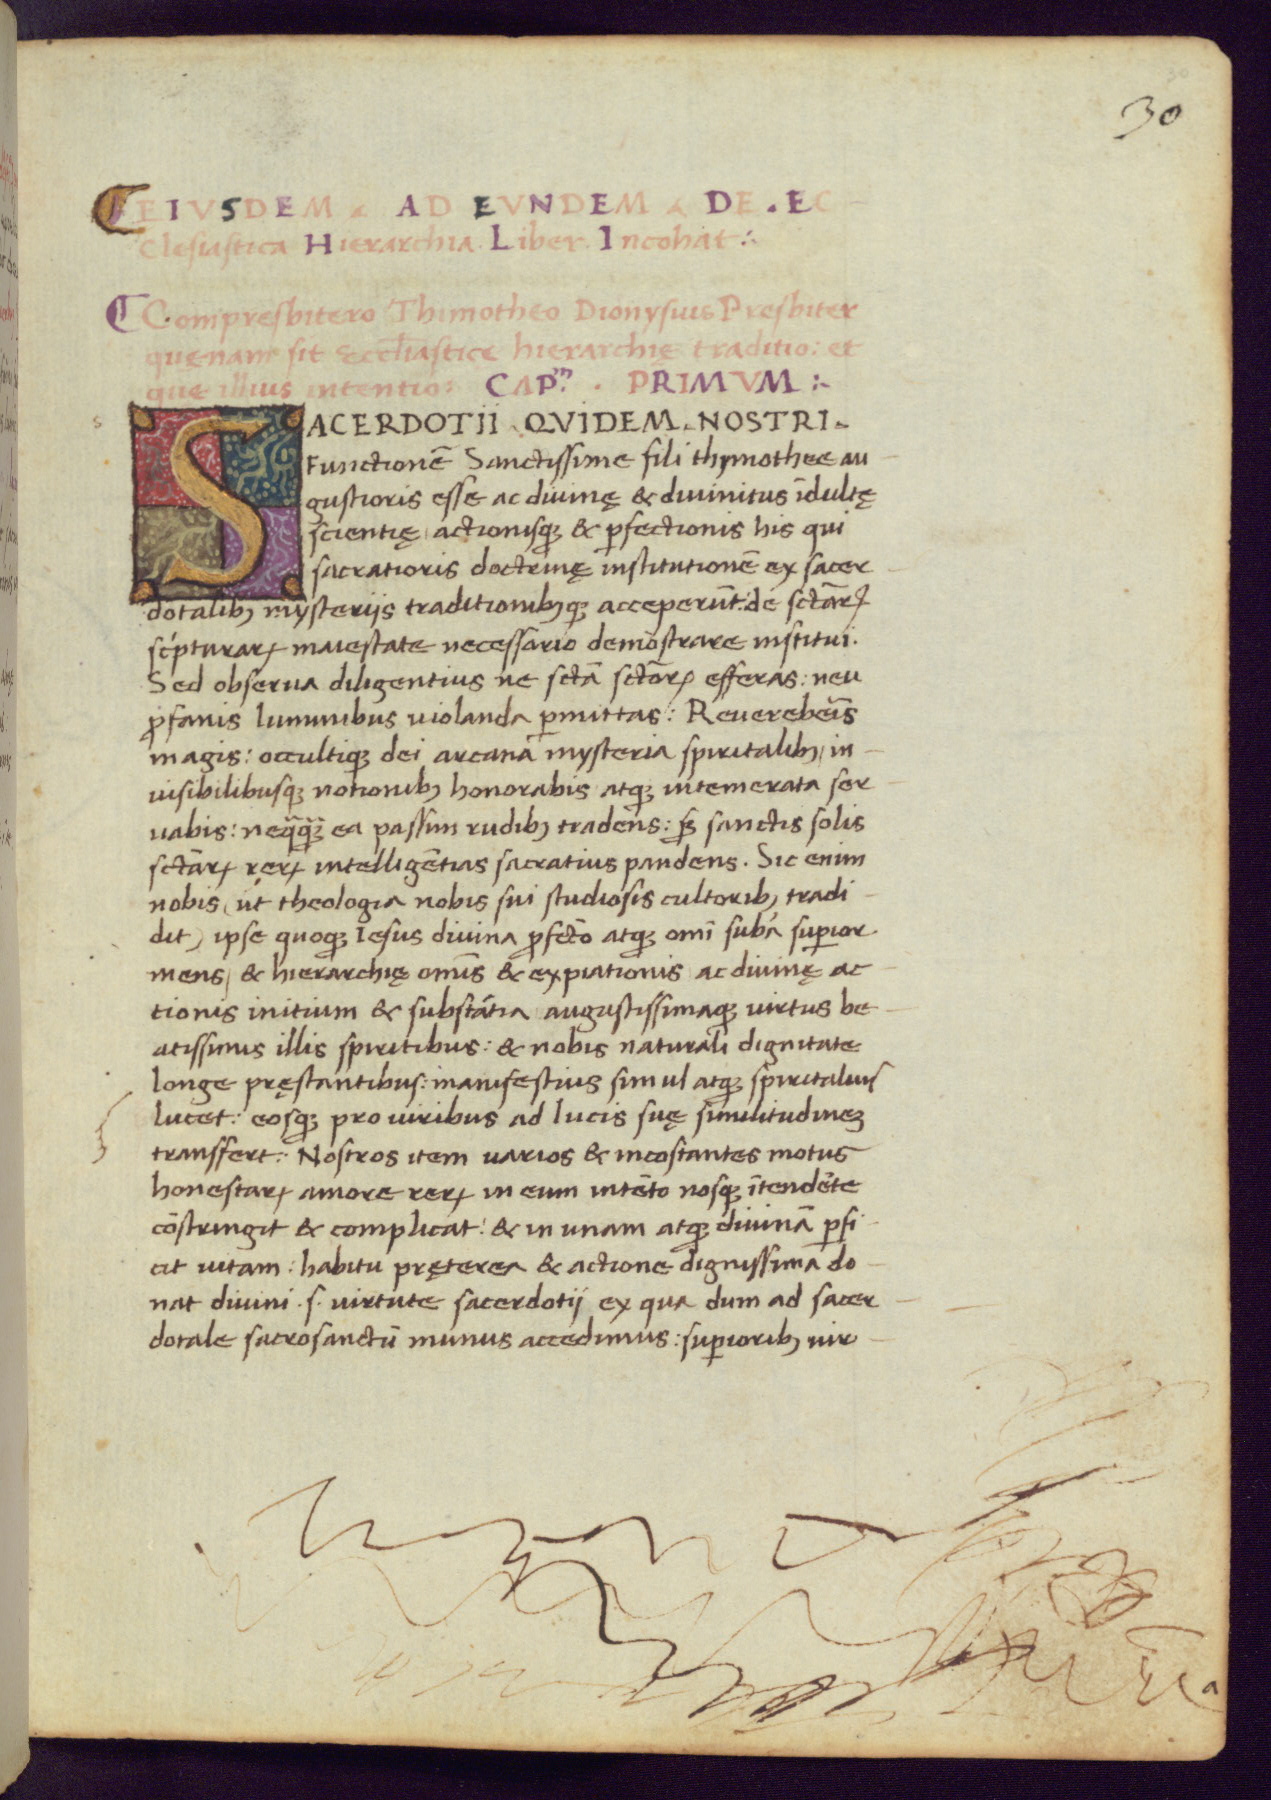 30
EIVSDEM AD EVNDEM DE . EC
clesiastica Hierarchia Liber Incohat :.
Compresbitero Thimotheo Dionysius Presbiter
quęnam sit Eccl̄iasticę hierarchię traditio: et
quę illius intentio: CAPᵐ. PRIMVM :.
s
SACERDOTII QVIDEM NOSTRI
Functionē Sanctissime fili thymothee au
gustioris esse ac diuinę & diuinitus īdultę
scientię actionisqꝫ & ꝑfectionis his qui
sacratioris doctrinę institutionē ex sacer
dotalibꝫ mysterijs traditionibꝫqꝫ acceperūt: de sctāꝝ
sc'pturaꝝ maiestate necessario demōstrare institui.
Sed obserua diligentius ne sctā sctōꝝ efferas: neu
ꝓfanis luminibus uiolanda ꝑmittas: Reuerebeīs
magis: occultiqꝫ dei arcana mysteria spiritalibꝫ in
uisibilibusqꝫ notionibꝫ honorabis atqꝫ intemerata ser
uabis: neq̄q̄ꝫ ea passim rudibꝫ tradens: sꝫ sanctis solis
sctāꝝ reꝝ intelligētias sacratius pandens. Sic enim
nobis (ut theologia nobis sui studiosis cultoribꝫ tradi
dit) ipse quoqꝫ Iesus diuina ꝓfcto atqꝫ omī subā suꝑior
mens, & hierarchię omīs & expiationis ac diuinę ac
tionis initium & substātia augustissimaqꝫ uirtus be
atissimis illis spiritibus: & nobis naturali dignitate
longe pręstantibus: manifestius simul atqꝫ spiritalius
lucet: eosqꝫ pro uiribus ad lucis suę similitudineꝫ
transfert: Nostros item uarios & incostantes motus
honestaꝝ amore reꝝ in eum intēto nosqꝫ ītendēte
cōstringit & complicat: & in unam atqꝫ diuinā ꝑfi
cit uitam: habitu pręterea & actione dignissima do
nat diuini .s. uirtute sacerdotij ex qua dum ad sacer
dotale sacrosanctū munus accedimus: suꝑioribꝫ uir